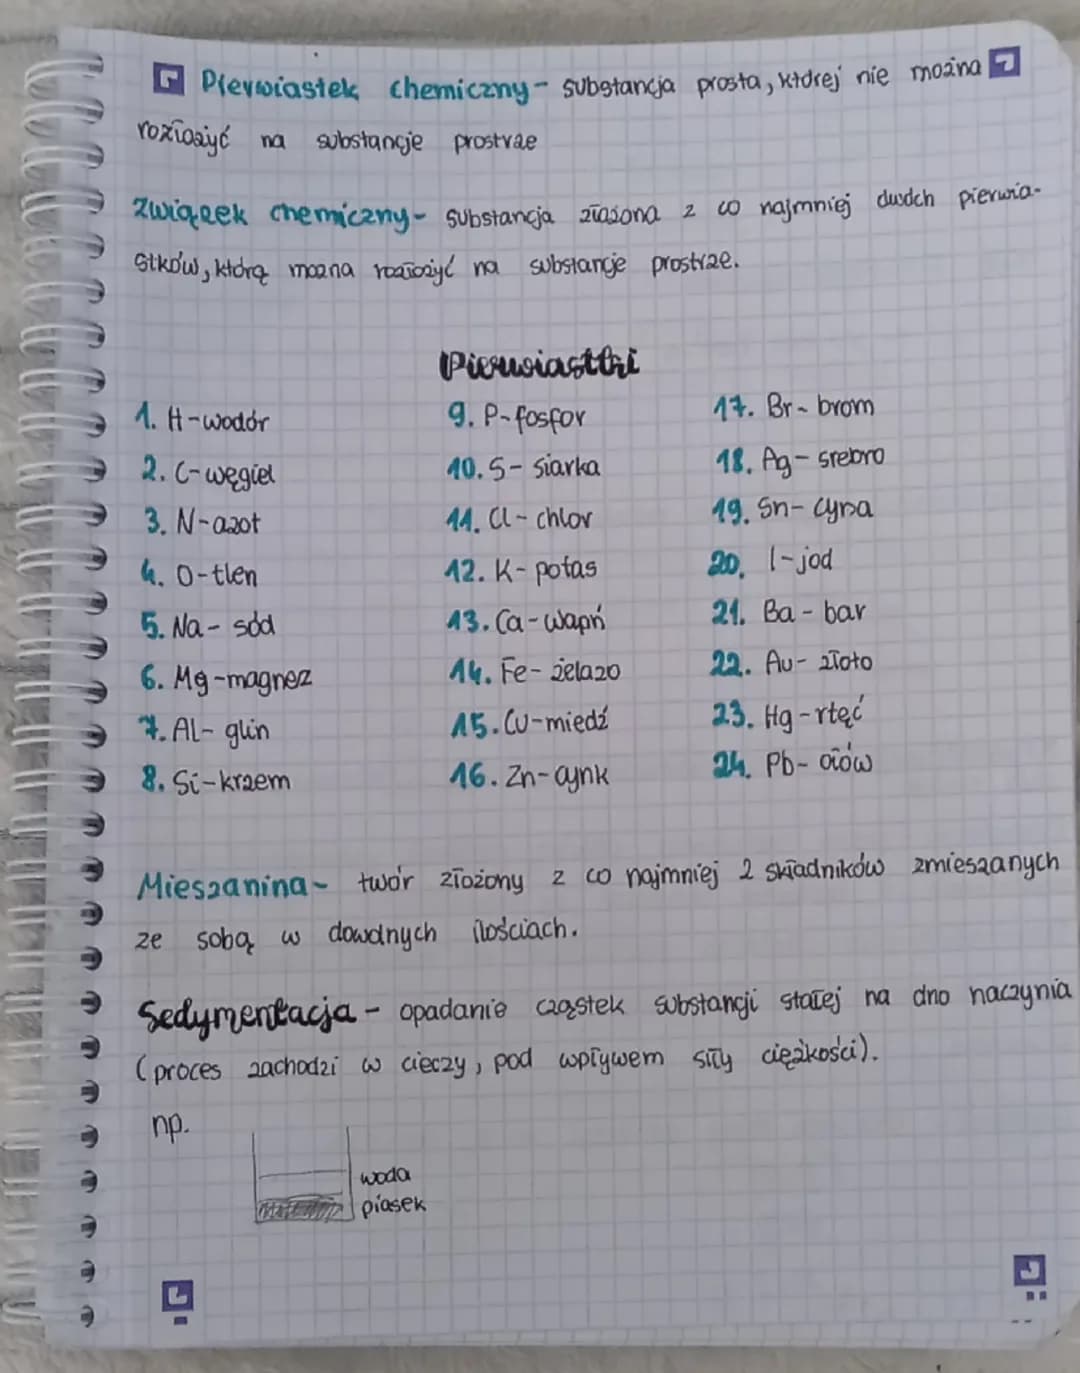 Pierwiastek chemiczny - substancja prosta, której nie można
rozłożyć na substancje prostrze
Związek chemiczny - substancja złażona z co najmniej dwóch pierwia-
stków, którą można rozłożyć na substancje prostrze.
Pierwiastki
1. H - wodór
2. C - węgiel
3. N - azot
4. O - tlen
5. Na - sód
6. Mg - magnez
7. Al - glin
8. Si - krzem
9. P - fosfor
10. S - siarka
11. Cl - chlor
12. K - potas
13. Ca - wapń
14. Fe - żelazo
15. Cu - miedź
16. Zn - cynk
17. Br - brom
18. Ag - srebro
19. Sn - cyna
20. I - jod
21. Ba - bar
22. Au - złoto
23. Hg - rtęć
24. Pb - ołów
Mieszanina - twór złożony z co najmniej 2 składników zmieszanych
ze sobą w dowolnych ilościach.
Sedymentacja - opadanie cząstek substancji stałej na dno naczynia
(proces zachodzi w cieczy, pod wpływem siły ciężkości).
np.
woda
piasek